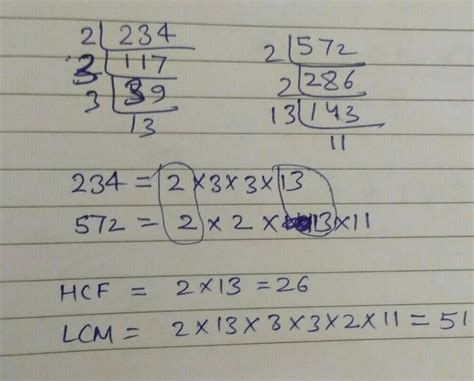 2 | 234
3 | 117
3 | 39
13
2 | 572
2 | 286
13 | 143
11
234 = 2 × 3 × 3 × 13
572 = 2 × 2 × 13 × 11
HCF = 2 × 13 = 26
LCM = 2 × 13 × 3 × 3 × 2 × 11 = 51